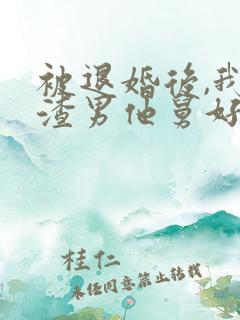 被退婚後,我
渣男他舅好
桂仁
未经同意禁止转载